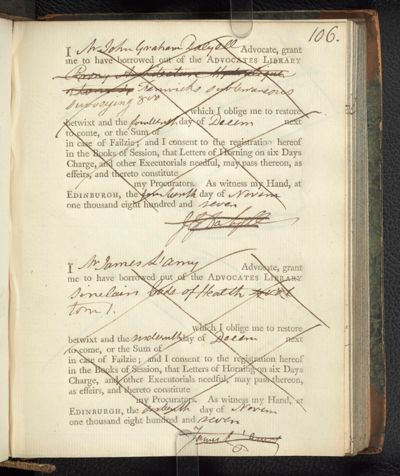 106.
I Mr John Graham Dalyell Advocate, grant
me to have borrowed out of the ADVOCATES LIBRARY
Architecture
Fenwicks subterraneous
surveying 8vo
which I oblige me to restore
betwixt and the fourteenth day of Decem next
to come, or the Sum of
in case of Failzie; and I consent to the registration hereof
in the Books of Session, that Letters of Horning on six Days
Charge, and other Executorials needful, may pass thereon, as
effeirs, and thereto constitute
my Procurators. As witness my Hand, at
EDINBURGH, the fourteenth day of Novem
one thousand eight hundred and seven
I Mr James L'amy Advocate, grant
me to have borrowed out of the ADVOCATES LIBRARY
Sinclairs Code of Health
tom 1.
which I oblige me to restore
betwixt and the sixteenth day of Decem next
to come, or the Sum of
in case of Failzie; and I consent to the registration hereof
in the Books of Session, that Letters of Horning on six Days
Charge, and other Executorials needful, may pass thereon,
as effeirs, and thereto constitute
my Procurators. As witness my Hand, at
EDINBURGH, the sixteenth day of Novem
one thousand eight hundred and seven
James L'amy